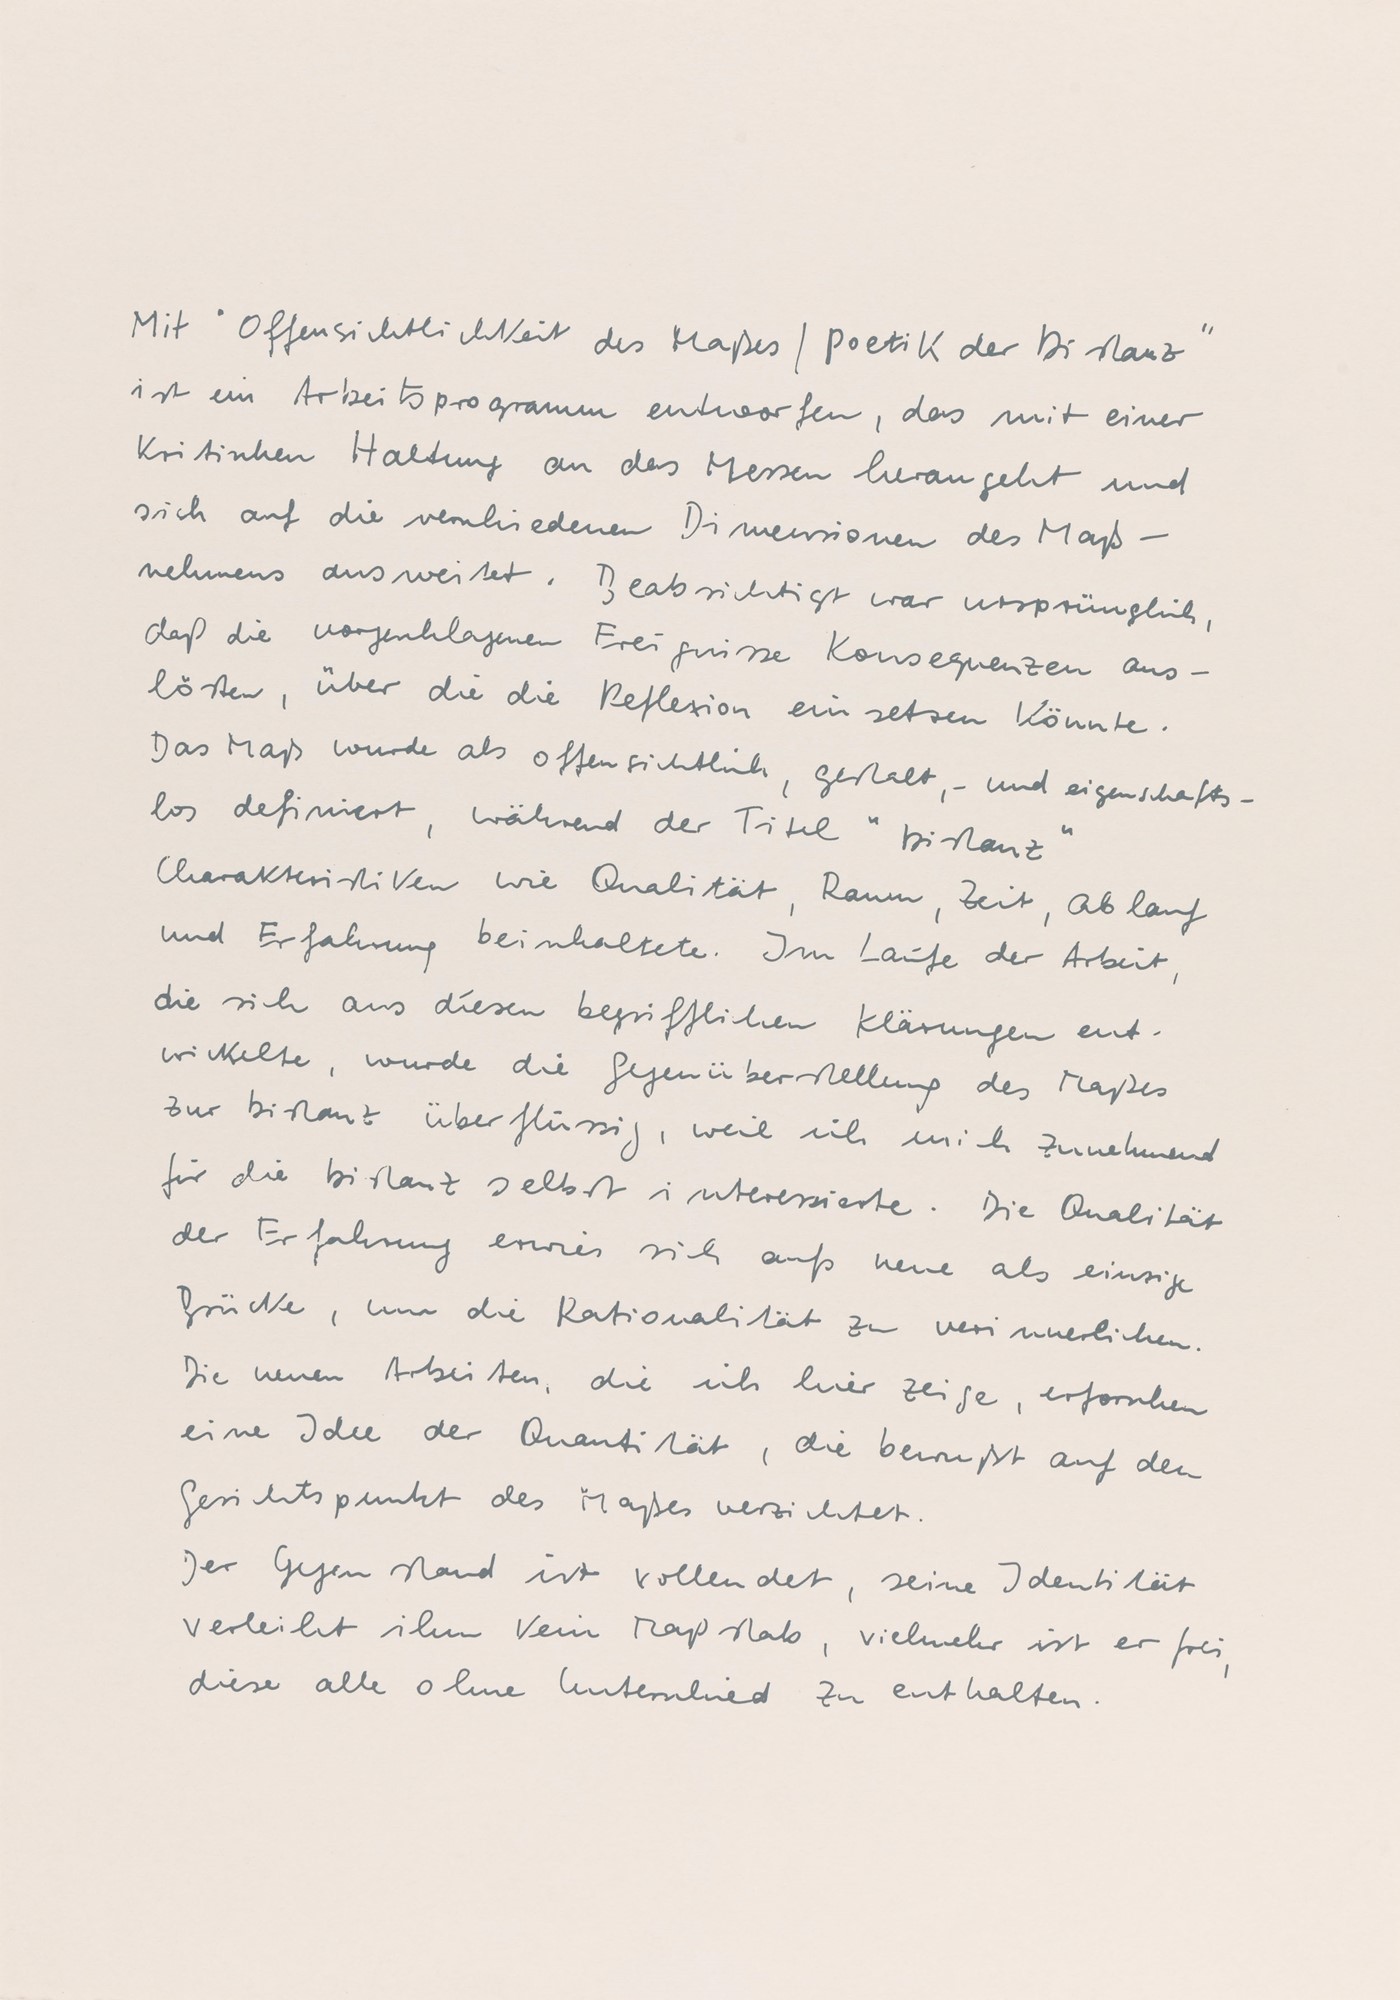 Mit "Offensichtlichkeit des Maßes / Poetik der Distanz"
ist ein Arbeitsprogramm entworfen, das mit einer
kritischen Haltung an das Messen herangeht und
sich auf die verschiedenen Dimensionen des Maß-
nehmens ausweitet. Beabsichtigt war ursprünglich,
daß die vorgeschlagenen Ereignisse Konsequenzen aus-
lösten, über die die Reflexion einsetzen könnte.
Das Maß wurde als offensichtlich, gestalt,- und eigenschafts-
los definiert, während der Titel "Distanz"
Charakteristiken wie Qualität, Raum, Zeit, Ablauf
und Erfahrung beinhaltete. Im Laufe der Arbeit,
die sich aus diesen begrifflichen Klärungen ent-
wickelte, wurde die Gegenüberstellung des Maßes
zur Distanz überflüssig, weil ich mich zunehmend
für die Distanz selbst interessierte. Die Qualität
der Erfahrung erwies sich aufs neue als einzige
Brücke, um die Rationalität zu verinnerlichen.
Die neuen Arbeiten, die ich hier zeige, erforschen
eine Idee der Quantität, die bewußt auf den
Gesichtspunkt des Maßes verzichtet.
Der Gegenstand ist vollendet, seine Identität
verleiht ihm kein Maßstab, vielmehr ist er frei,
diese alle ohne Unterschied zu enthalten.